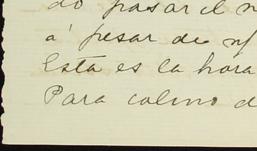 do pasar el
á pesar de
Esta es la hora
Para colmo d